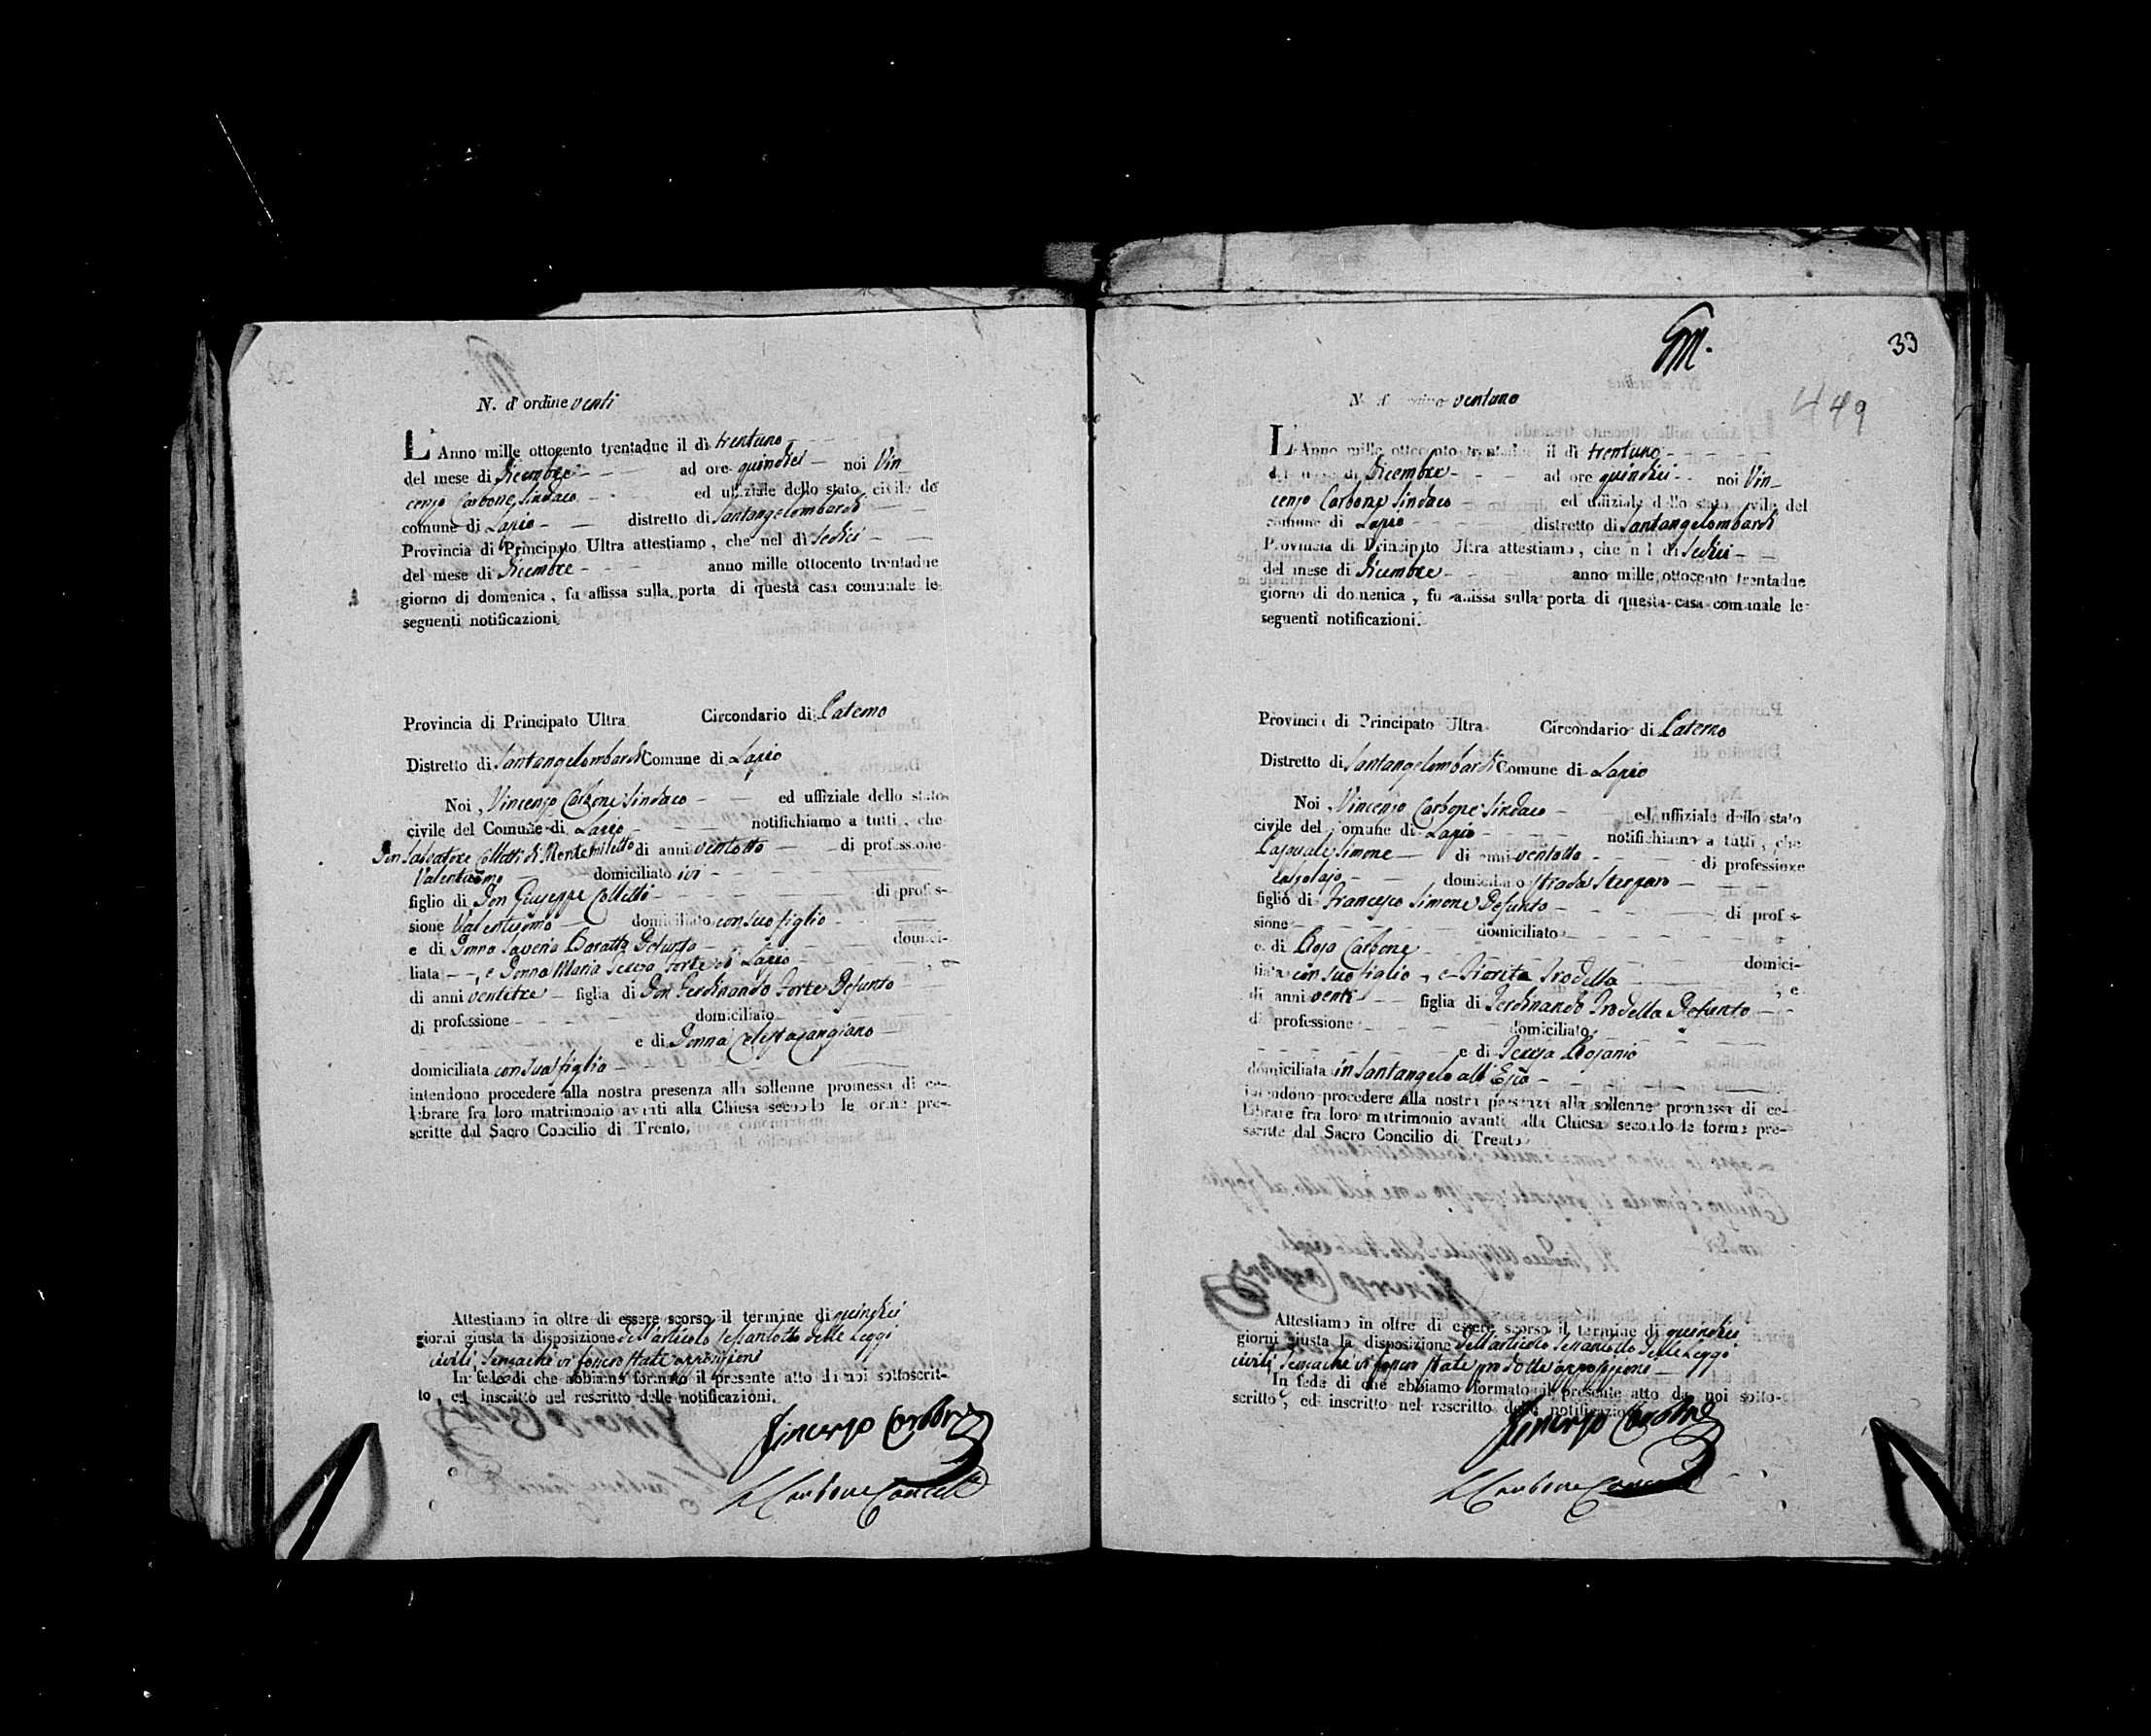 N. d' ordine venti
L'Anno mille ottocento trentadue il dì trentuno
del mese di Dicembre ad ore quindici noi Vin
cenzo Carbone Sindaco ed uffiziale dello stato civile de
comune di Lapio distretto di Santangelombardi
Provincia di Principato Ultra attestiamo, che nel dì Sedici
del mese di Dicembre anno mille ottocento trentadue
giorno di domenica, fu affissa sulla porta di questa casa comunale le
seguenti notificazioni.
Provincia di Principato Ultra Circondario di Paterno
Distretto di Santangelombardi Comune di Lapio
Noi, Vincenzo Carbone Sindaco ed uffiziale dello stato
civile del Comune di Lapio notifichiamo a tutti, che
Don Salvatore Colletti di Montemiletto di anni ventotto di professione
Valentuomo domiciliato ivi
figlio di Don Giuseppe Colletti di profes-
sione Valentuomo domiciliato con suo figlio
e di Donna Saveria Defunta domici-
liata e Donna Maria Teresa Forte di Lapio, e
di anni ventitre figlia di Don Ferdinando Forte Defunto
di professione domiciliato
e di Donna Celesta Cangiano
domiciliata con sua figlia
intendono procedere alla nostra presenza alla sollenne promessa di ce-
lebrare fra loro matrimonio avanti alla Chiesa secondo le forme pre-
scritte dal Sacro Concilio di Trento.
Attestiamo in oltre di essere scorso il termine di quindici
giorni giusta la disposizione dell'articolo Sessantotto delle Leggi
civili, Senzachè vi fossero state opposizioni
In fede di che abbiamo formato il presente atto di noi sottoscrit-
to, ed inscritto nel rescritto delle notificazioni.
Vincenzo Carbone
Carbone Cancell
33
449
N. d' ordine ventuno
L'Anno mille ottocento trentadue il dì trentuno
del mese di Dicembre ad ore quindici noi Vin
cenzo Carbone Sindaco ed uffiziale dello stato civile del
comune di Lapio distretto di Santangelombardi
Provincia di Principato Ultra attestiamo, che nel dì Sedici
del mese di Dicembre anno mille ottocento trentadue
giorno di domenica, fu affissa sulla porta di questa casa comunale le
seguenti notificazioni.
Provincia di Principato Ultra Circondario di Paterno
Distretto di Santangelombardi Comune di Lapio
Noi, Vincenzo Carbone Sindaco ed uffiziale dello stato
civile del Comune di Lapio notifichiamo a tutti, che
Pasquale Simone di anni ventotto di professione
domiciliato Strada
figlio di Francesco Simone Defunto di profes-
sione domiciliato
e di Rosa Carbone domici-
liata con suo figlio, e Fiorita Trodella, e
di anni venti figlia di Ferdinando Trodella Defunto
di professione domiciliato
e di Teresa Rosanio
domiciliata in Santangelo all'Esca
intendono procedere alla nostra presenza alla sollenne promessa di ce-
lebrare fra loro matrimonio avanti alla Chiesa secondo le forme pre-
scritte dal Sacro Concilio di Trento.
Attestiamo in oltre di essere scorso il termine di quindici
giorni giusta la disposizione dell'articolo Sessantotto delle Leggi
civili, Senzachè vi fossero state prodotte opposizioni
In fede di che abbiamo formato il presente atto da noi sotto-
scritto, ed inscritto nel rescritto delle notificazioni.
Vincenzo Carbone
Carbone